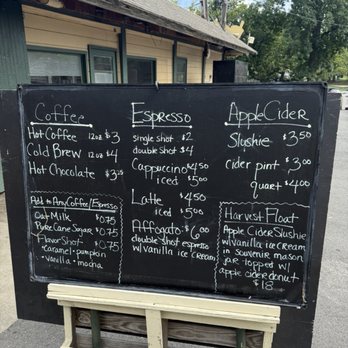 Coffee
Hot Coffee 12oz $3
Cold Brew 12oz $4
Hot Chocolate $3
Add to Any Coffee/Espresso
Oat Milk $0.75
Pure Cane Sugar $0.75
Flavor Shot $0.75
• caramel • pumpkin
• vanilla • mocha
Espresso
single shot $2
double shot $4
Cappuccino $4.50
iced $5.00
Latte $4.50
iced $5.00
Affogato $6.00
double shot espresso
w/vanilla ice cream
Apple Cider
Slushie $3.50
cider pint $3.00
quart $4.00
Harvest Float
Apple Cider Slushie
w/vanilla ice cream
in souvenir mason
jar topped w/
apple cider donut
$18